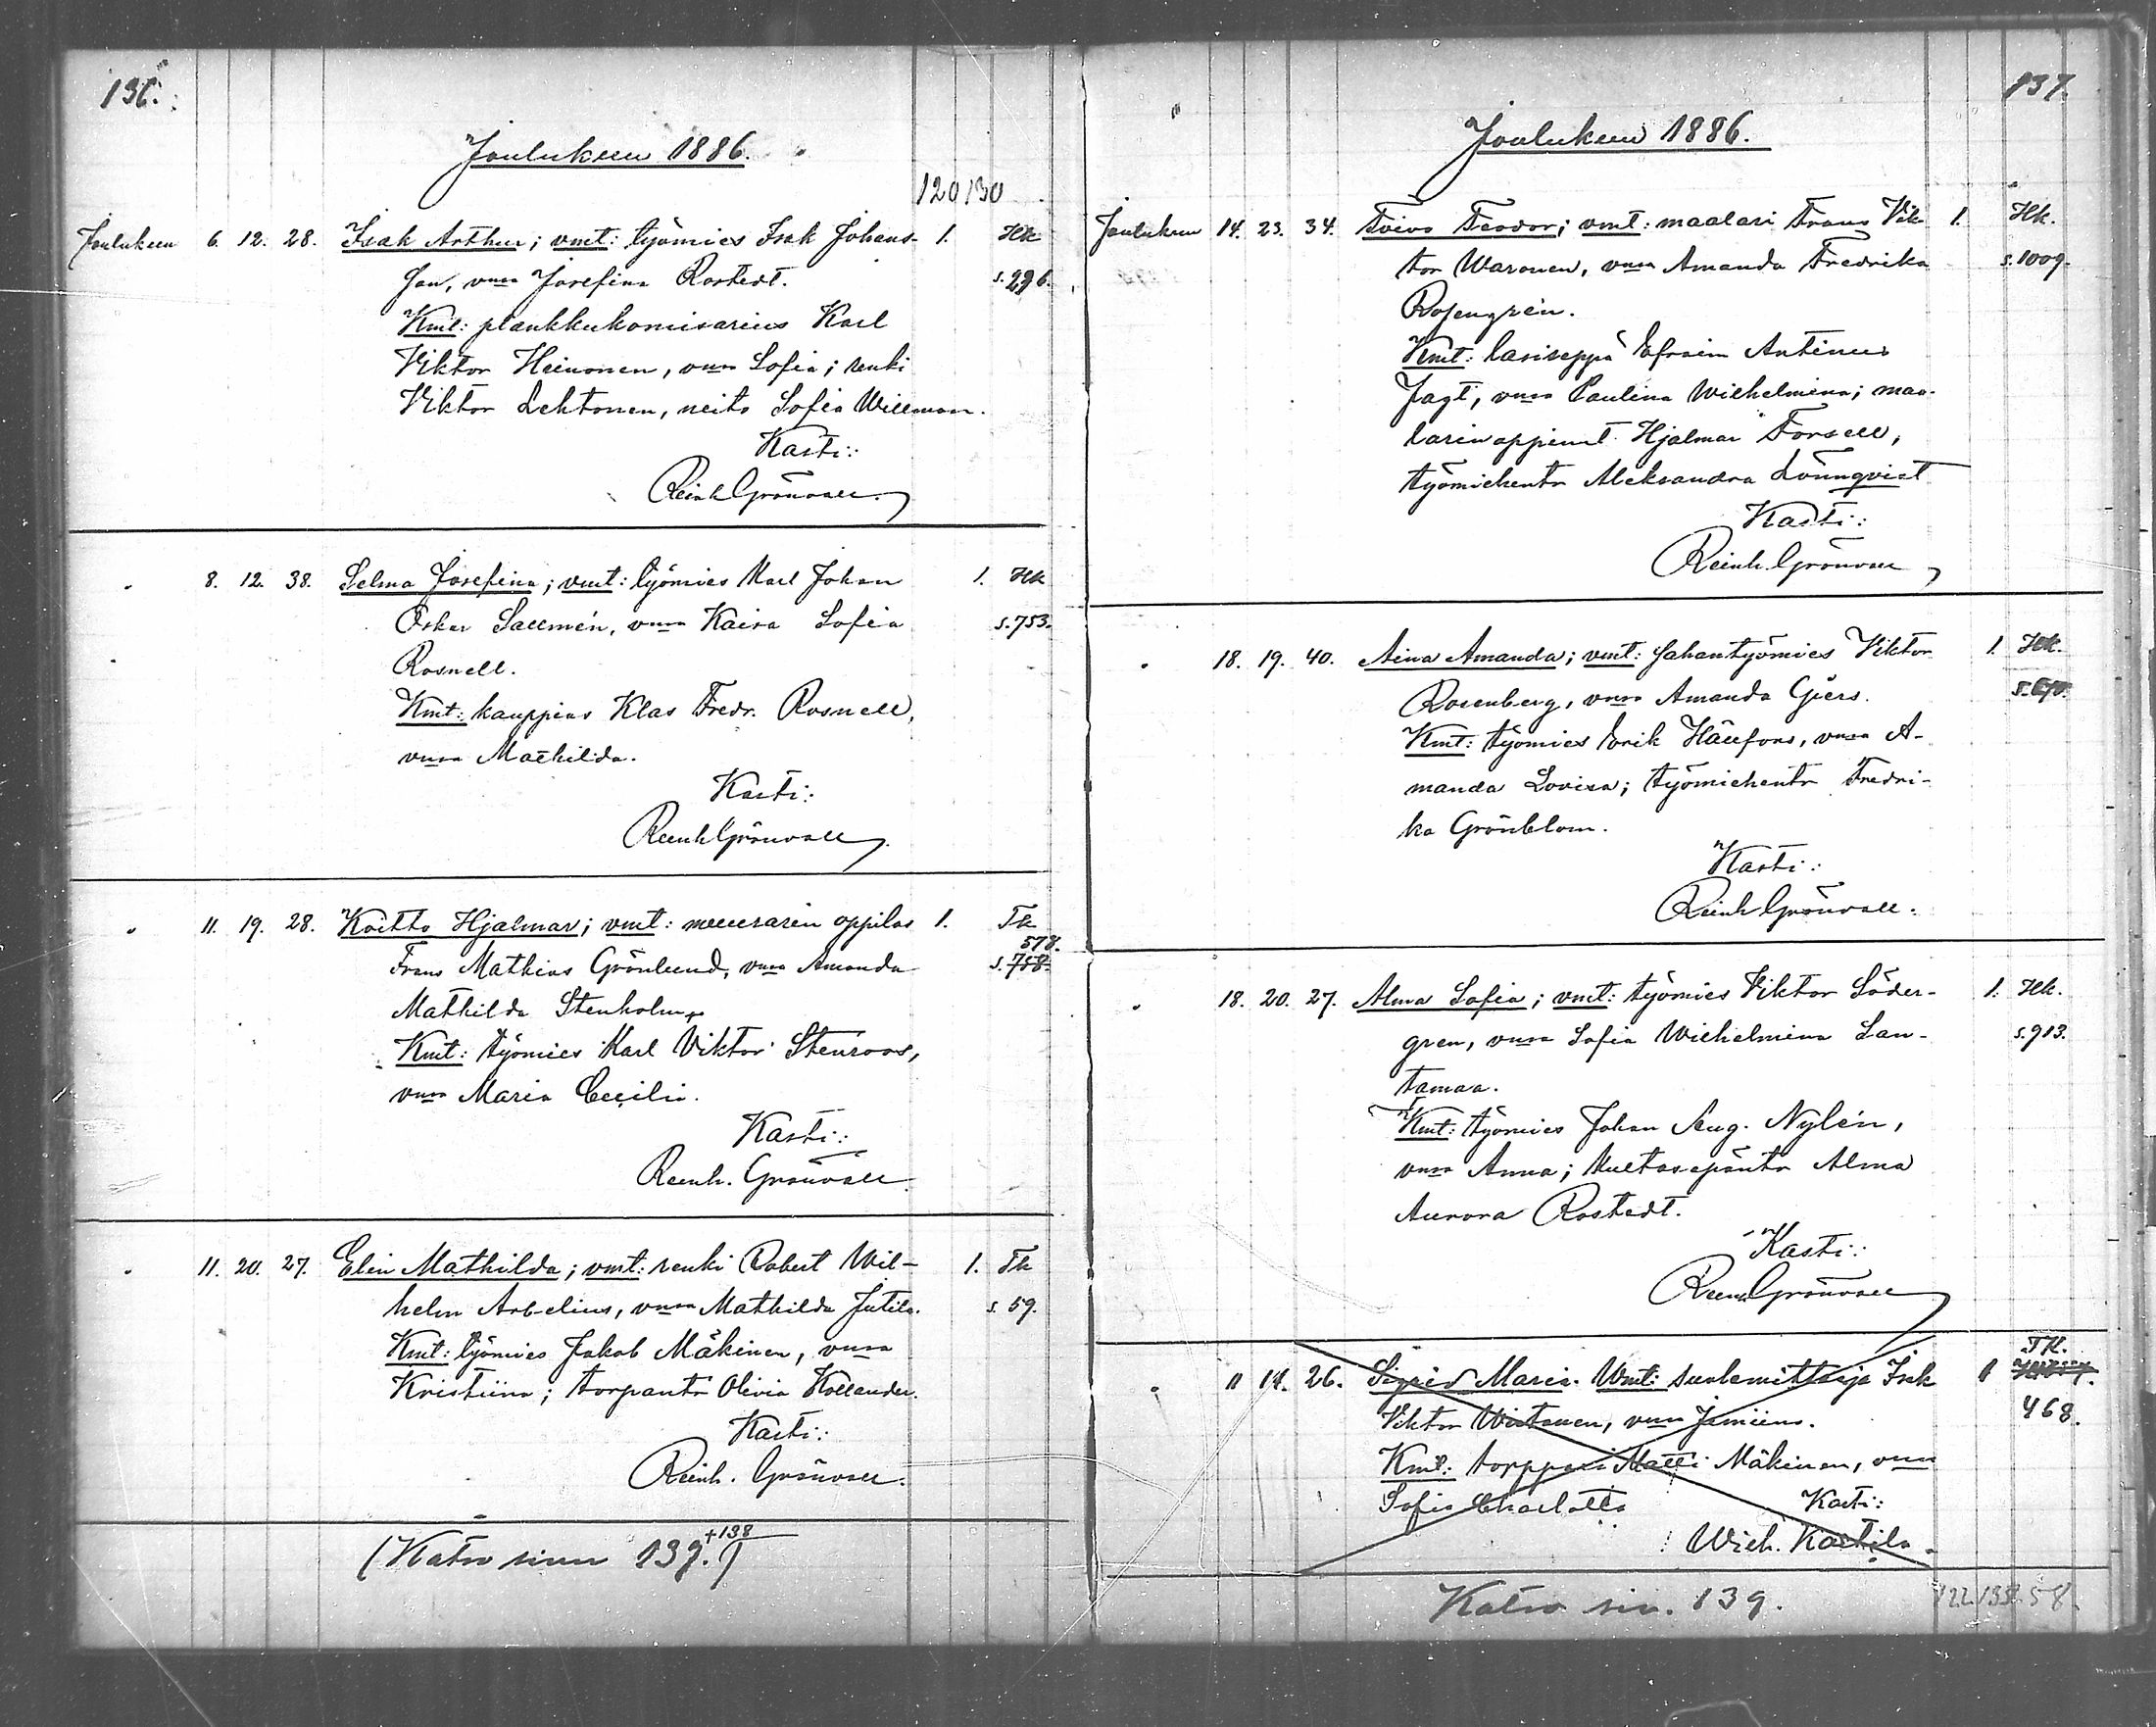 136.
Joulukuu 1886.
120 130
Joulukuu 6. 12. 28. Isak Arthur; vmt: työmies Isak Johans- 1. Hk
son, vmsa Josefina Rostedt. s. 296.
Kmt: plankkukomisarius Karl
Viktor Heinonen, vmsa Sofia; renki
Viktor Lehtonen, neito Sofia Willman.
Kasti:
Reinh Grönvall.
" 8. 12. 38. Selma Josefina; vmt: työmies Karl Johan 1. Hk
Oskar Sallmén, vmsa Kaisa Sofia s. 753.
Rosnell.
Kmt: kauppias Klas Fredr. Rosnell,
vmsa Mathilda.
Kasti:
Reinh Grönvall
" 11. 19. 28. Koitto Hjalmar; vmt: muurarin oppilas 1. Tk
578.
Frans Mathias Grönlund, vmsa Amanda s. 758.
Mathilda Stenholm
Kmt: työmies Karl Viktor Stenroos,
vmsa Maria Cecilia.
Kasti:
Reinh. Grönvall
" 11. 20. 27. Elin Mathilda; vmt: renki Robert Wil- 1. Tk
helm Arbelius, vmsa Mathilda Jutila. s. 59.
Kmt: työmies Jakob Mäkinen, vmsa
Kristiina; torpantr Olivia Hollander.
Kasti:
Reinh. Grönvall.
(Katso sivu 137. +138)
137.
Joulukuu 1886.
Joulukuu 14. 23. 34. Toivo Teodor; vmt: maalari Frans Vik 1. Hk.
tor Waronen, vmsa Amanda Fredrika s. 1009.
Rosengrén.
Kmt: lasiseppä Efraim Antinus
Jagt, vmsa Paulina Wilhelmina; maa-
larinoppimt. Hjalmar Forsell,
työmiehentr Aleksandra Lönnqvist
Kasti:
Reinh. Grönvall
" 18. 19. 40. Aina Amanda; vmt: sahantyömies Viktor 1. Hk.
Rosenberg, vmsa Amanda Giers.
Kmt: työmies Erik Hällfors, vmsa A-
manda Lovisa; työmiehentr Fredri-
ka Grönblom.
Kasti:
Reinh Grönvall.
" 18. 20. 27. Alma Sofia; vmt: työmies Viktor Söder- 1. Hk.
gren, vmsa Sofia Wilhelmina Lan- s. 913.
tamaa.
Kmt: työmies Johan Aug. Nylén,
vmsa Anna; kultasepäntr Alma
Aurora Rostedt.
Kasti:
Reinh Grönvall
TK.
" 11 14. 26. Sigrid Maria. Vmt: suolamittaja Isk 1
Viktor Wirtanen, vmsa 468.
Kmt: torppari Matti Mäkinen, vmsa
Sofia Charlotta Kasti:
Wilh. Kastila.
Katso siv. 139. 122. 135. 58.